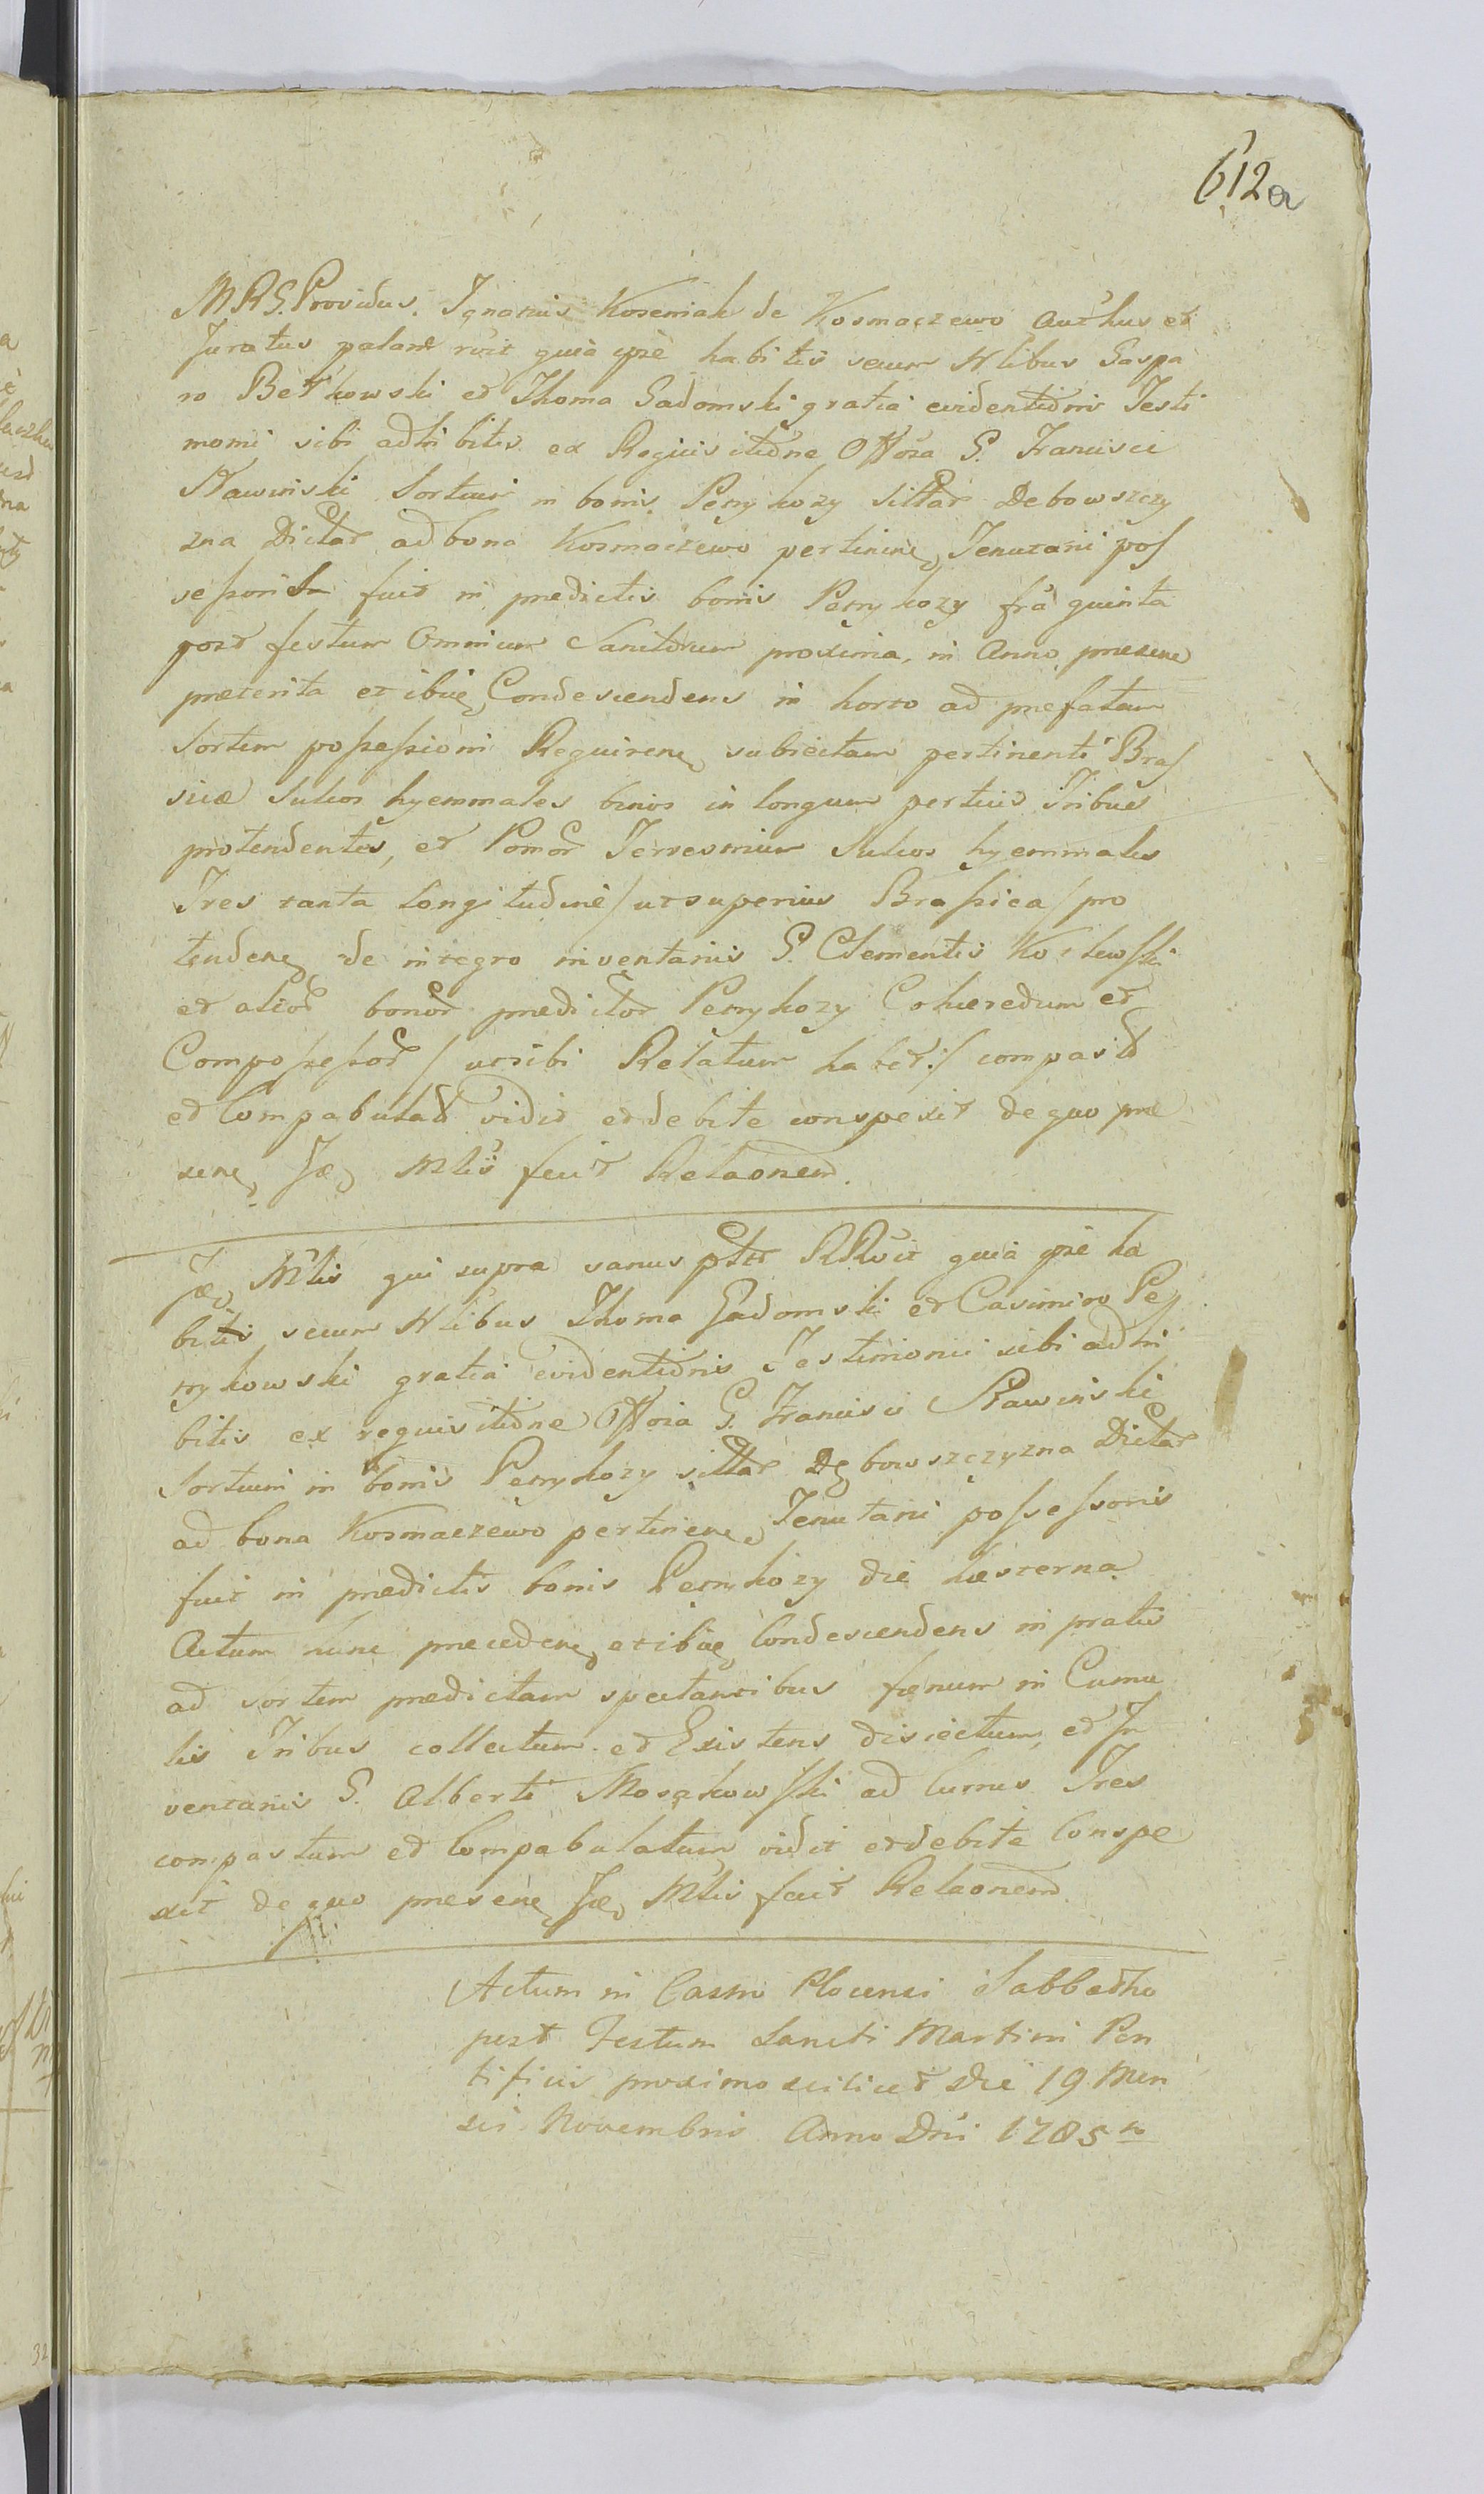 612a
MRG. Providus Ignatius Koseniak de Kosmaczewo Authus et
Juratus palam rvit quia ipse habitis secum Nlibus Gaspa
ro Betkowski et Thoma Gadomski gratia evidentioris Testi
monii sibi adhibitis ex Requisitione Offosa G. Francisci
Rawinski Sortium in bonis Perzykozy sittar Debowszczy
zna Dictar ad bona Kosmaczewo pertinen Tenutarii pos
sessoris fuit in prædictis bonis Perzykozy fra quinta
post festum Omnium Sanctorum proxima, in Anno præsene
præterita et ibiq Condescendens in horto ad præfatam
Sortem possessioni Requirens subiectam pertinenti Bras
sicæ Sulcos hyemmales binos in longum perticis Tribus
protendentes, et Pomor Terrestrium Sulcos hyemmales
Tres tanta Longitudine / ut superius Brassica / pro
tenden de integro inventariis G. Clementis Kozlowski
et alior bonor prædictor Perzykozy Cohæredum et
Compossessor / ut sibi Relatum habet / compastos
et Compabulatos vidit et debite conspexit de quo præ
sens Jdem Mlis fecit Relaonem.
Jdem Mlis qui supra sanus pttr RRvit quia ipse ha
bitis secum Nlibus Thoma Gadomski et Casimiro Pe
rzykowski gratia evidentioris Testimonii sibi adhi
bitis ex requisitione Offosa G. Francisci Rawinski
Sortium in bonis Perzykozy sittar Dębowszczyzna Dictar
ad bona Kosmaczewo pertinen Tenutarii possessoris
fuit in prædictis bonis Perzykozy die hesterna
Actum nunc præceden et ibiq Condescendens in pratis
ad sortem prædictam spectantibus fænum in Cumu
lis Tribus collectum et Existens disiectum, et In
ventariis G. Alberti Mosakowski ad Currus Tres
compastum et Compabulatum vidit et debite Conspe
xit de quo præsens Jdem Mlis fecit Relaonem.
Actum in Castro Plocensi Sabbatho
post Festum Sancti Martini Pon
tificis proximo scilicet Die 19 Men
sis Novembris Anno Dni 1785to